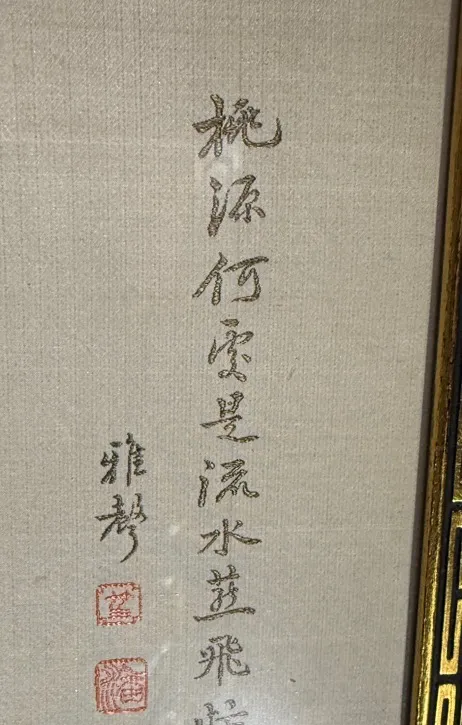 桃源何處是流水燕飛
雅聲